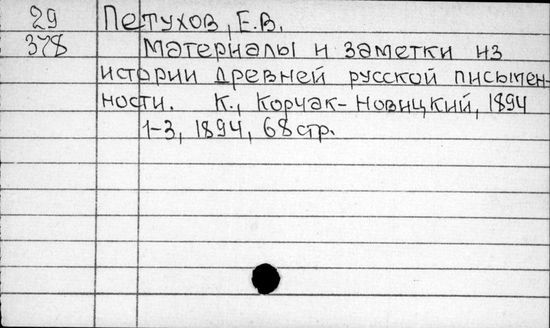 29 Петухов, Е.В.
378 Материалы и заметки из
истории древней русской письмен-
ности. К., Корчак-Новицкий, 1894
1-3, 1894, 68 стр.